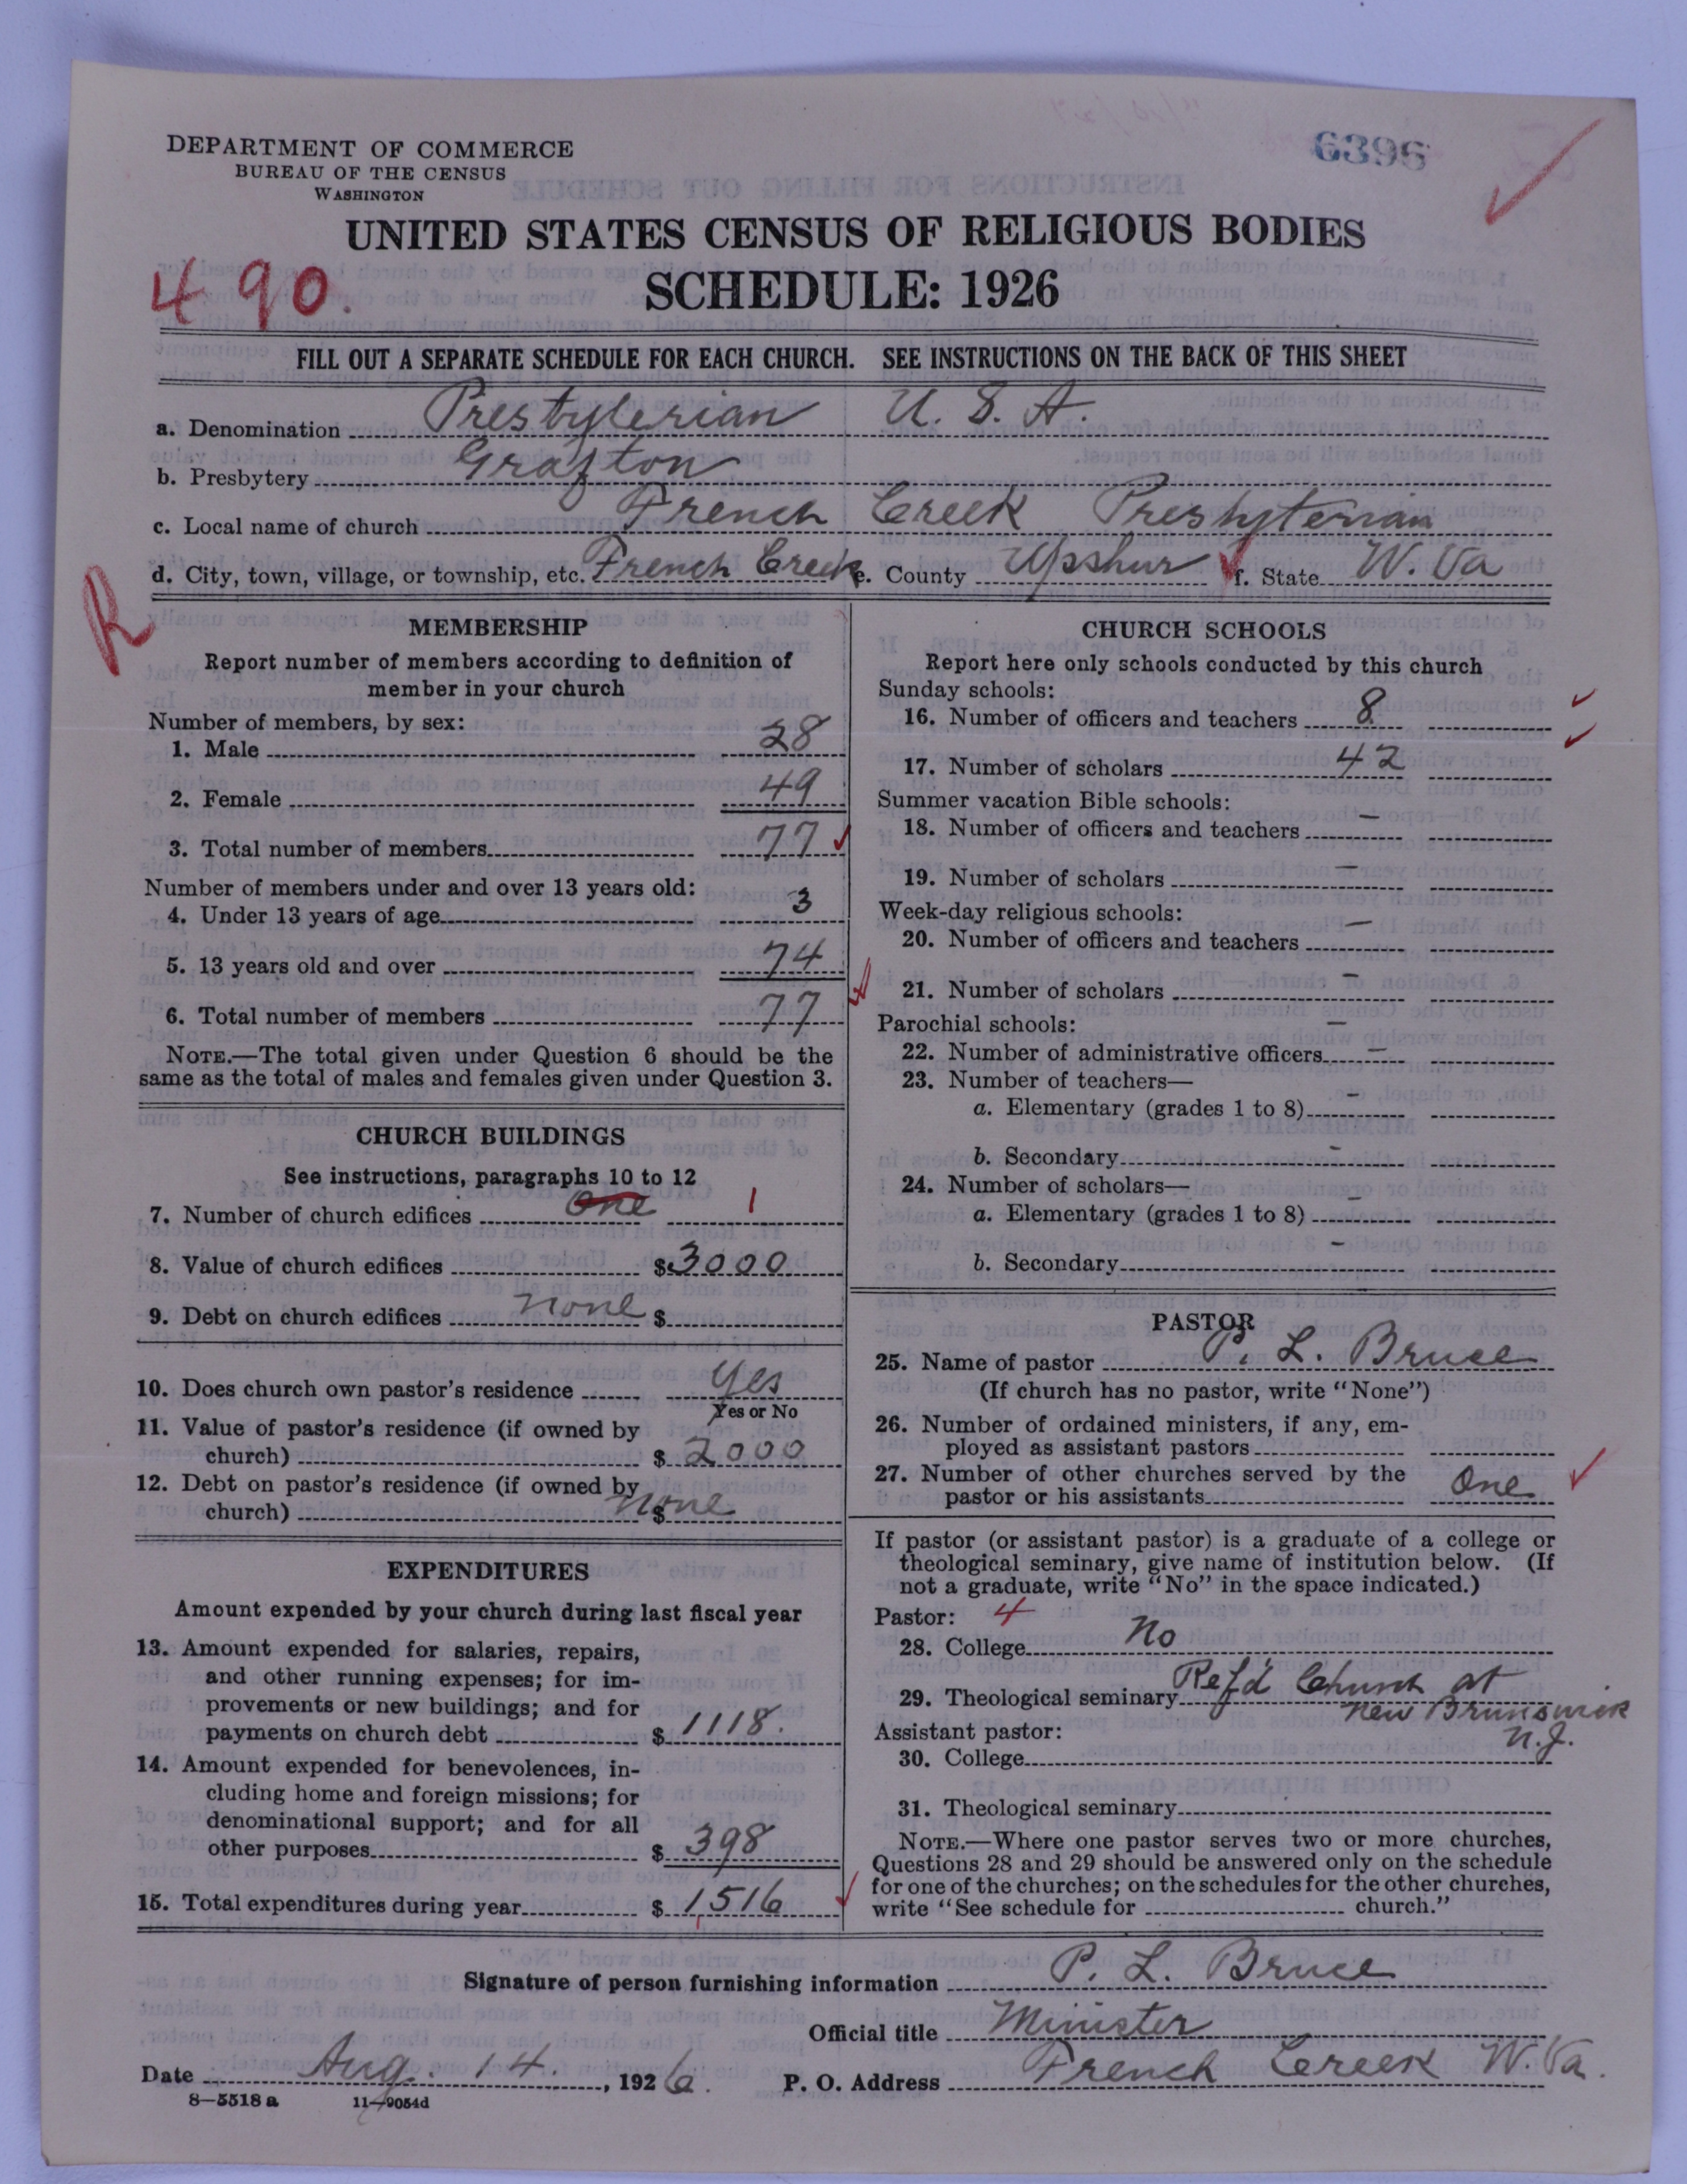 6396
DEPARTMENT OF COMMERCE
BUREAU OF THE CENSUS
WASHINGTON
UNITED STATES CENSUS OF RELIGIOUS BODIES
490.
SCHEDULE: 1926
FILL OUT A SEPARATE SCHEDULE FOR EACH CHURCH. SEE INSTRUCTIONS ON THE BACK OF THIS SHEET
a. Denomination Presbyterian U. S. A.
b. Presbytery Grafton
c. Local name of church French Creek Presbyterian
d. City, town, village, or township, etc. French Creek e. County Upshur f. State W. Va
R
MEMBERSHIP
Report number of members according to definition of
member in your church
Number of members, by sex:
1. Male 28
2. Female 49
3. Total number of members 77
Number of members under and over 13 years old:
4. Under 13 years of age 3
5. 13 years old and over 74
6. Total number of members 77
NOTE.—The total given under Question 6 should be the
same as the total of males and females given under Question 3.
CHURCH BUILDINGS
See instructions, paragraphs 10 to 12
7. Number of church edifices One 1
8. Value of church edifices $3000
9. Debt on church edifices none $
10. Does church own pastor's residence Yes
Yes or No
11. Value of pastor's residence (if owned by
church) $ 2000
12. Debt on pastor's residence (if owned by
church) none $
EXPENDITURES
Amount expended by your church during last fiscal year
13. Amount expended for salaries, repairs,
and other running expenses; for im-
provements or new buildings; and for
payments on church debt $ 1118.
14. Amount expended for benevolences, in-
cluding home and foreign missions; for
denominational support; and for all
other purposes $ 398
15. Total expenditures during year $ 1,516
CHURCH SCHOOLS
Report here only schools conducted by this church
Sunday schools:
16. Number of officers and teachers 8
17. Number of scholars 42
Summer vacation Bible schools:
18. Number of officers and teachers –
19. Number of scholars –
Week-day religious schools:
20. Number of officers and teachers –
21. Number of scholars –
Parochial schools: –
22. Number of administrative officers –
23. Number of teachers—
a. Elementary (grades 1 to 8) –
b. Secondary –
24. Number of scholars—
a. Elementary (grades 1 to 8) –
b. Secondary –
PASTOR
25. Name of pastor P. L. Bruce
(If church has no pastor, write "None")
26. Number of ordained ministers, if any, em-
ployed as assistant pastors
27. Number of other churches served by the
pastor or his assistants One
If pastor (or assistant pastor) is a graduate of a college or
theological seminary, give name of institution below. (If
not a graduate, write "No" in the space indicated.)
Pastor: 4
28. College No
29. Theological seminary Ref'd Church at
New Brunswick
N.J.
Assistant pastor:
30. College
31. Theological seminary
NOTE.—Where one pastor serves two or more churches,
Questions 28 and 29 should be answered only on the schedule
for one of the churches; on the schedules for the other churches,
write "See schedule for church."
Signature of person furnishing information P. L. Bruce
Official title Minister
Date Aug. 14. , 1926. P. O. Address French Creek W. Va.
8—5518 a 11—9054d